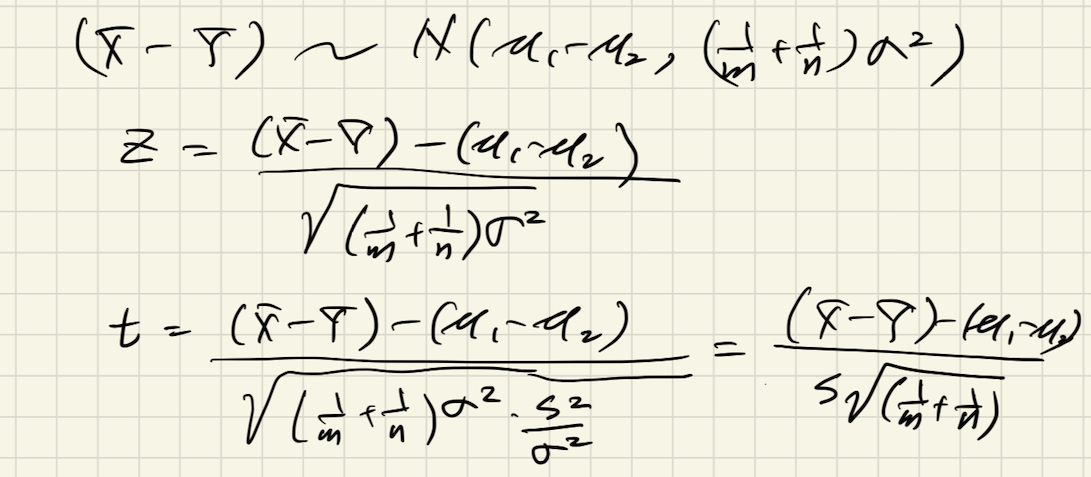 (X̄ - Ȳ) ~ N(μ₁-μ₂, (1/m + 1/n)σ²)
z = ((X̄-Ȳ) - (μ₁-μ₂)) / √((1/m + 1/n)σ²)
t = ((X̄-Ȳ) - (μ₁-μ₂)) / √((1/m + 1/n)σ² · S²/σ²) = ((X̄-Ȳ) - (μ₁-μ₂)) / (S√(1/m + 1/n))